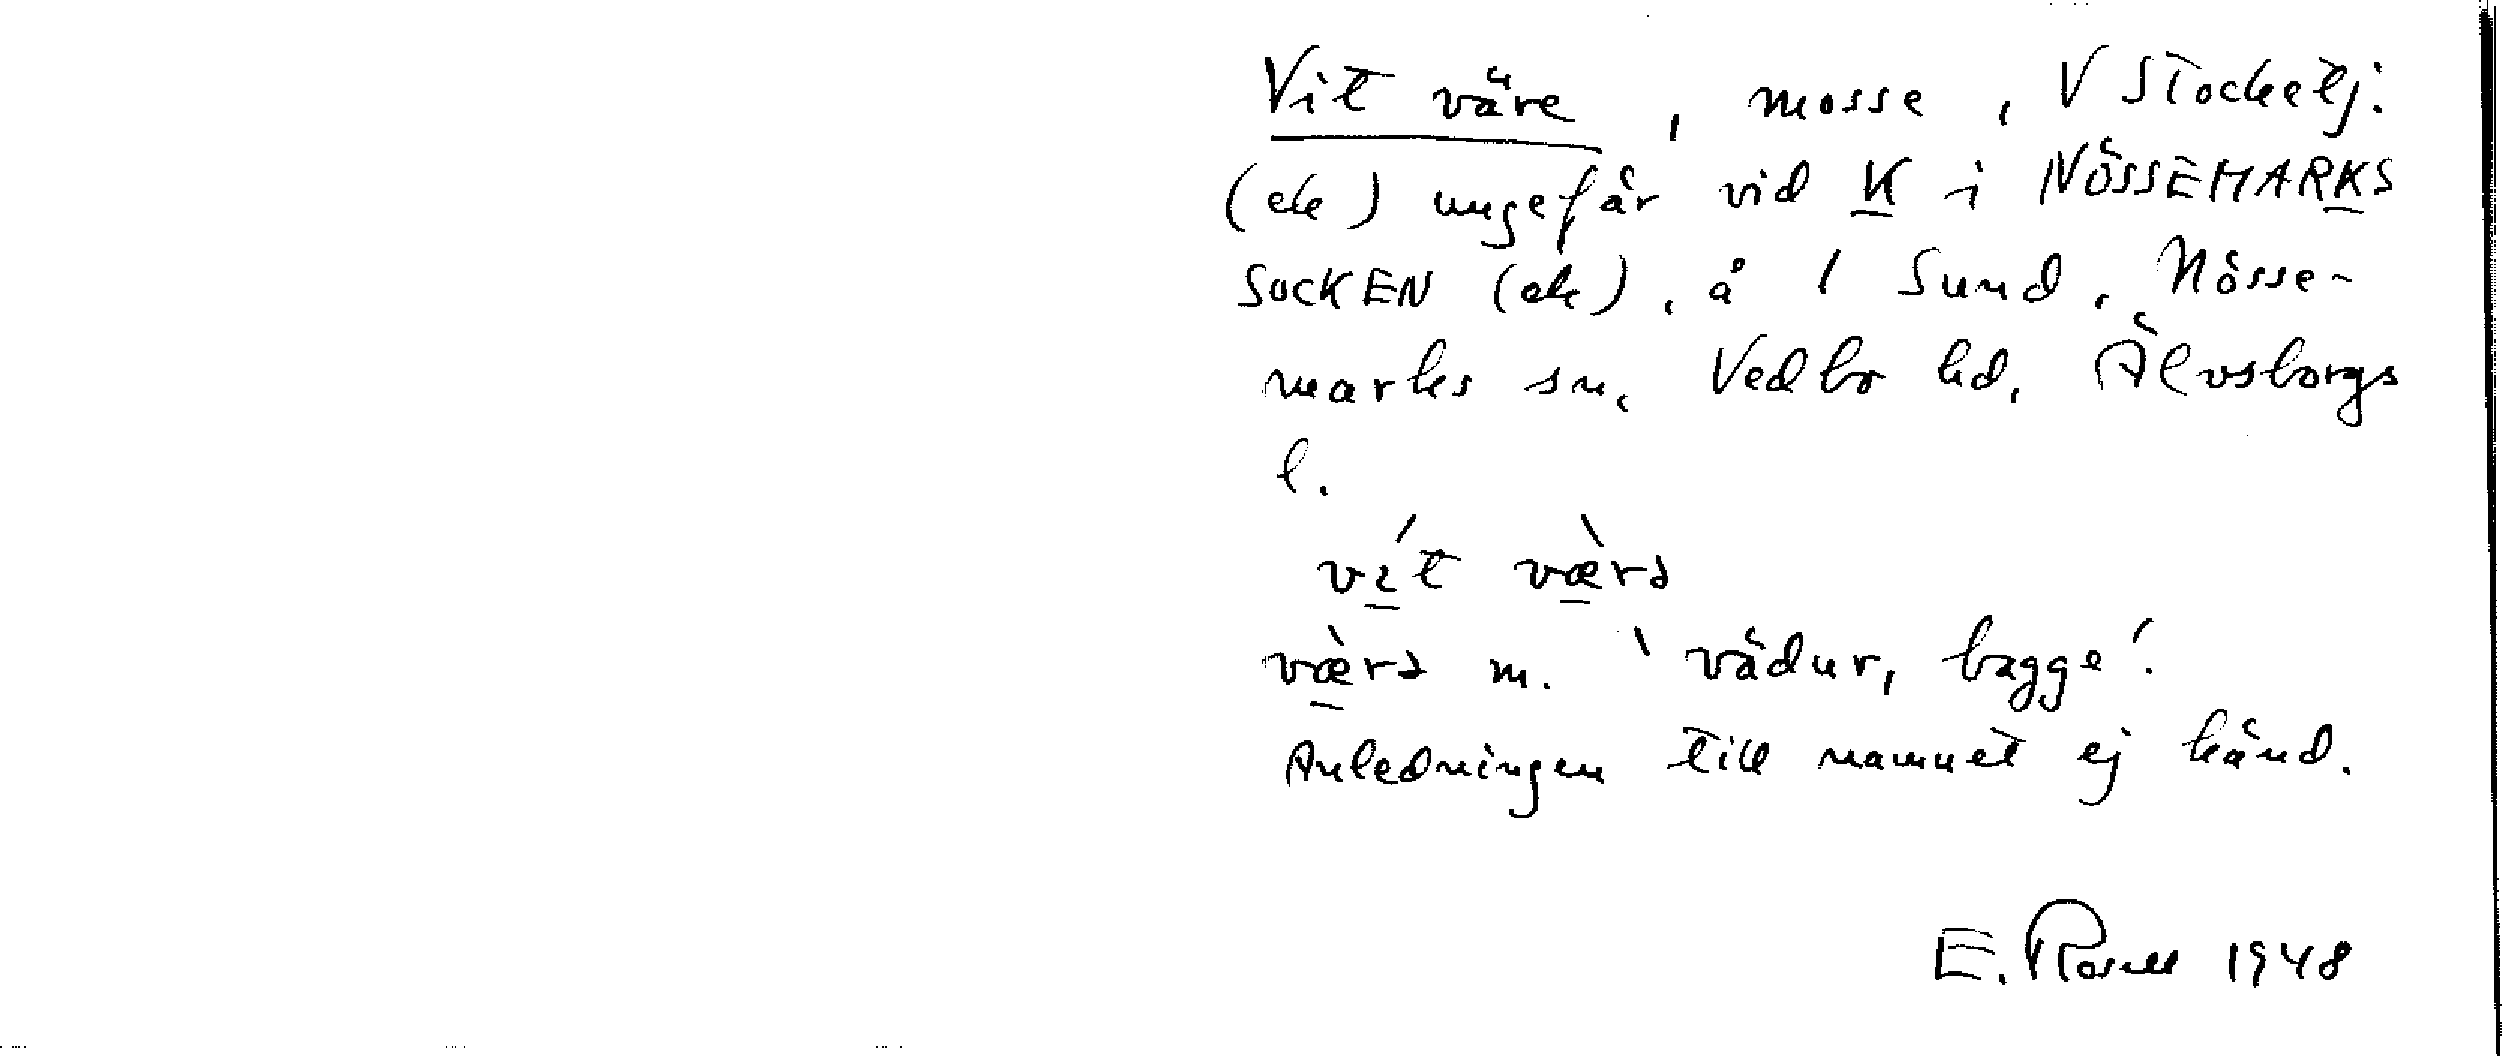 Vit väre, mosse, V Stocketj.
(ek) ungefär vid K i NÖSSEMARKS
SOCKEN (ek), å 1 Sund, Nösse-
marks sn, Vedbo hd, Älvsborgs
l.
vít væ̀rə
væ̀rə m. 'vädur, bagge'.
Anledningen till namnet ej känd.
E. Rosell 1948